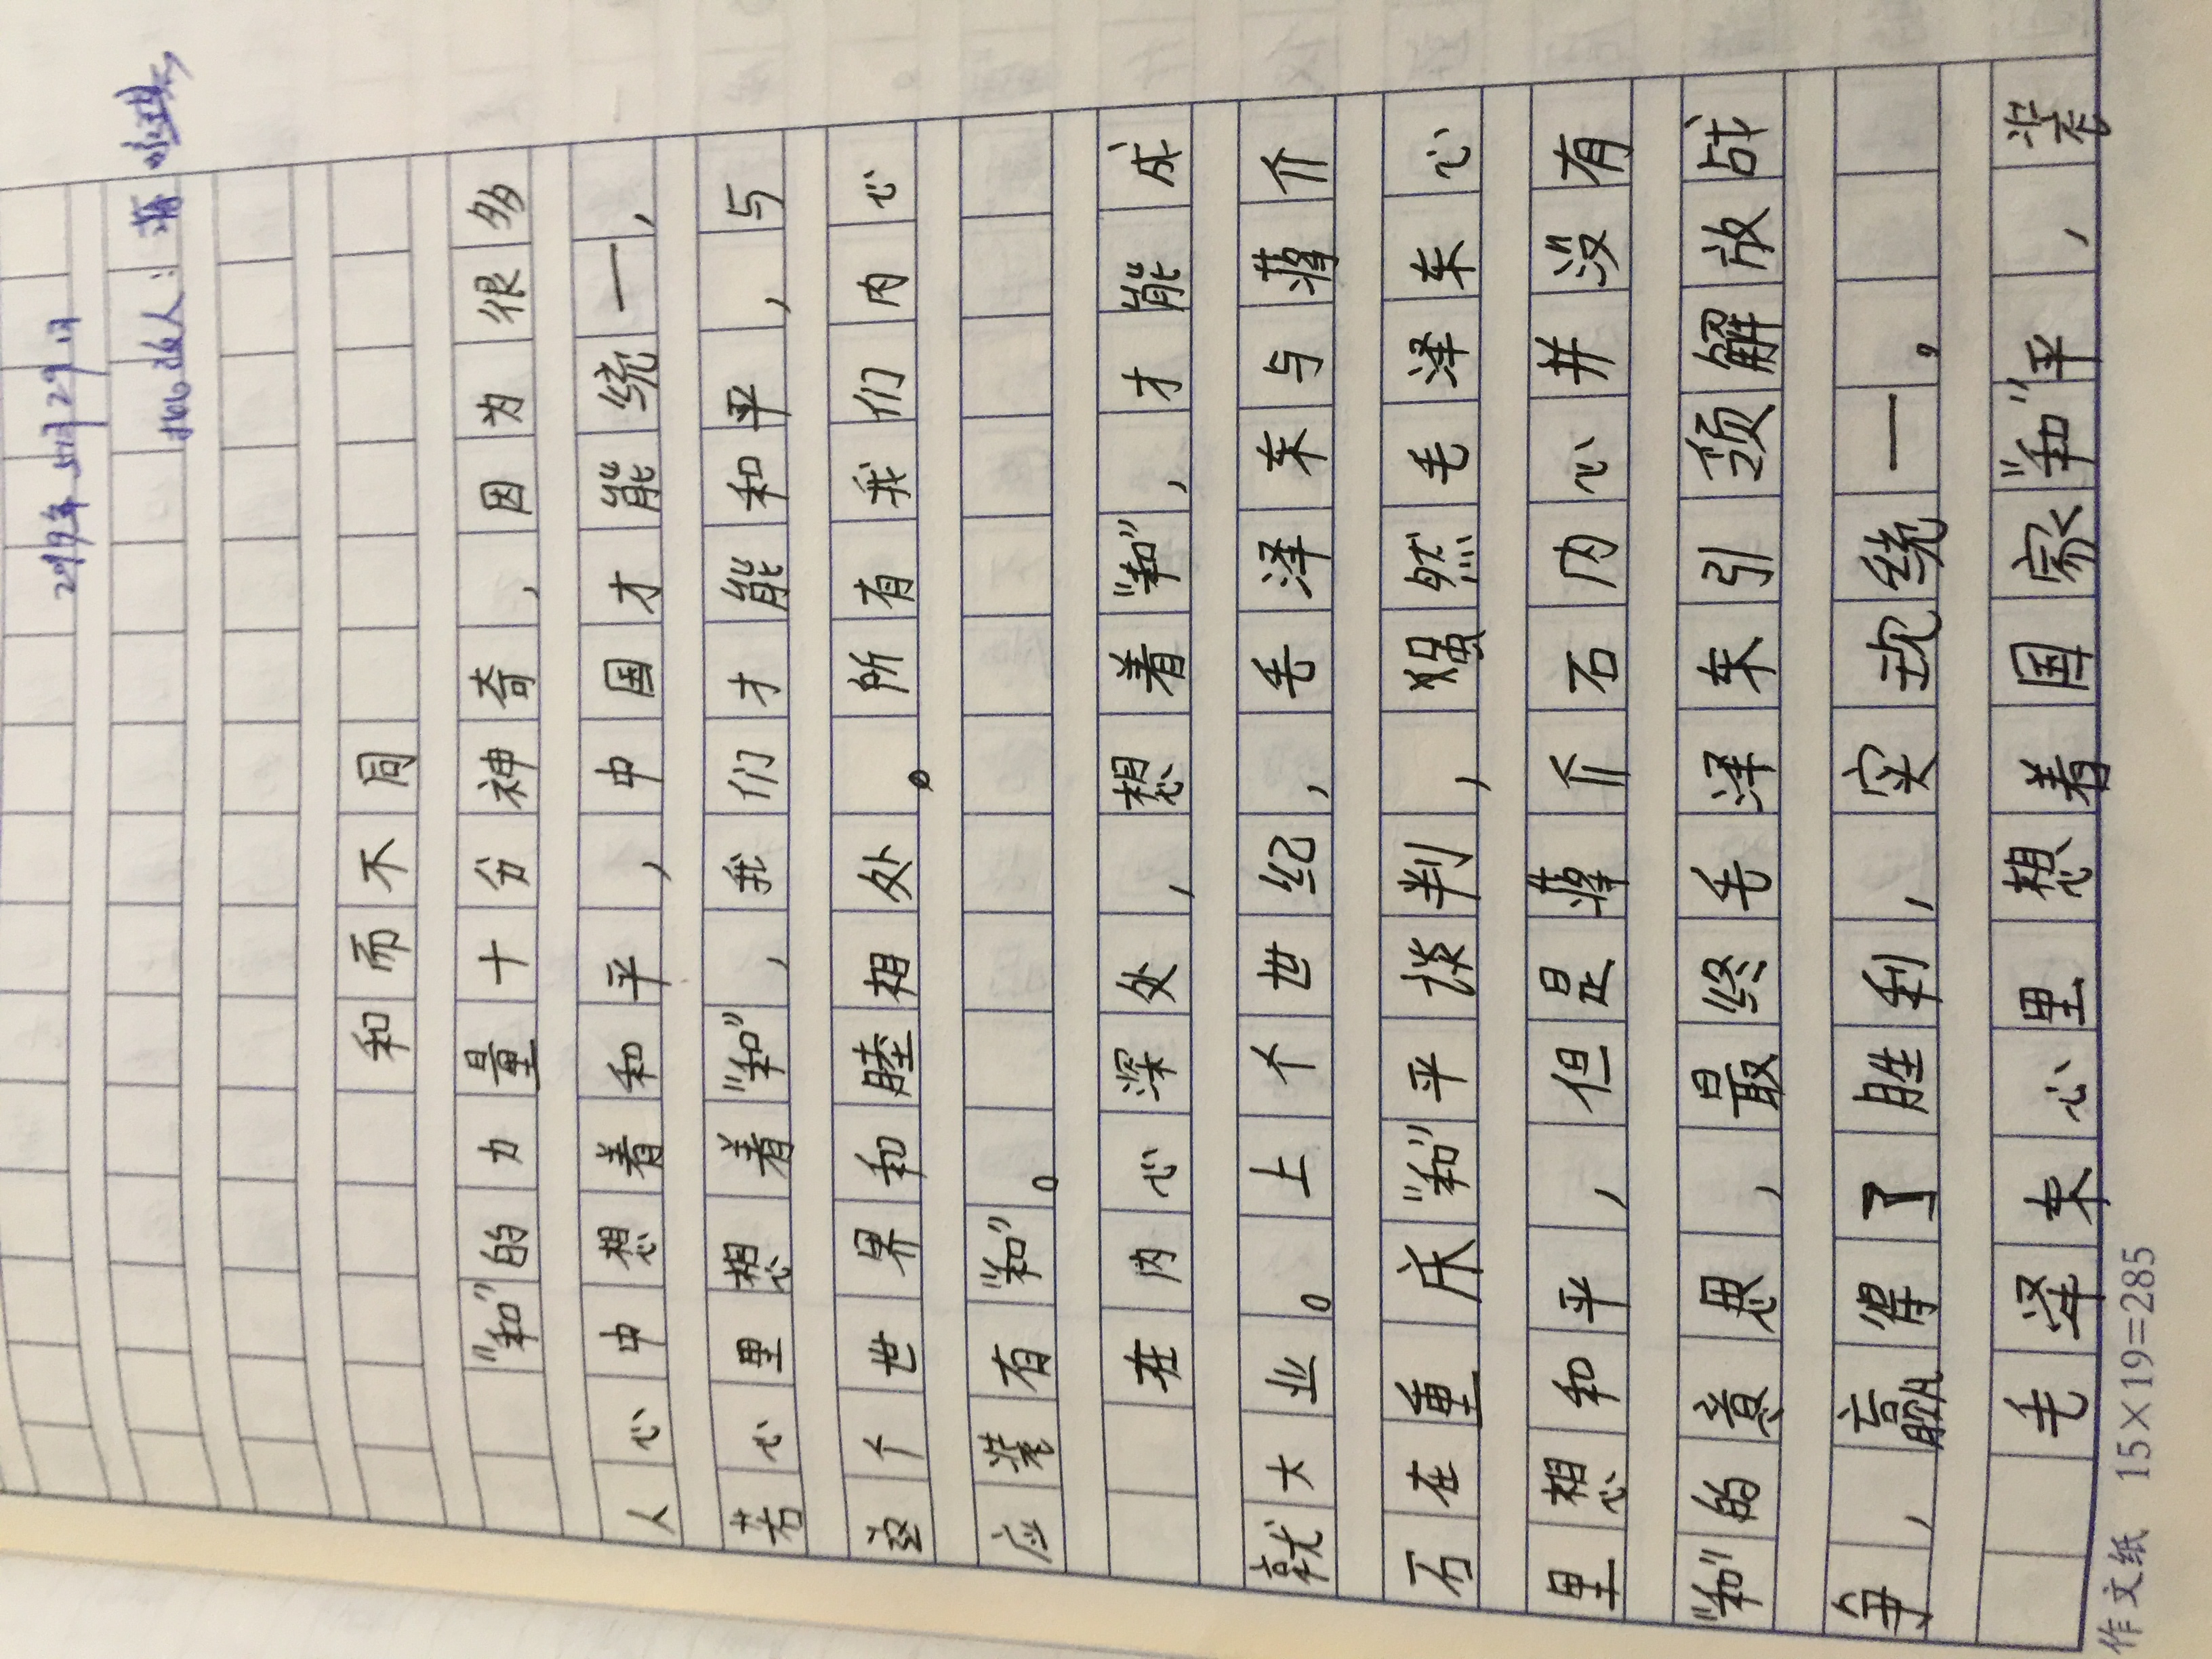 2019年5月29日
人：蒋
和而不同
“和”的力量十分神奇，因为很多
人心中想着和平，中国才能统一，
若心里想着“和”，我们才能和平，与
这个世界和睦相处。所有我们内心
应装有“和”。
在内心深处，想着“和”，才能成
就大业。上个世纪，毛泽东与蒋介
石在重庆“和”平谈判，虽然毛泽东心
里想和平，但是蒋介石内心并没有
“和”的意思，最终毛泽东引须解放战
争，赢得了胜利，实现统一。
毛泽东心里想着国家“和”平，装
作文纸 15×19=285